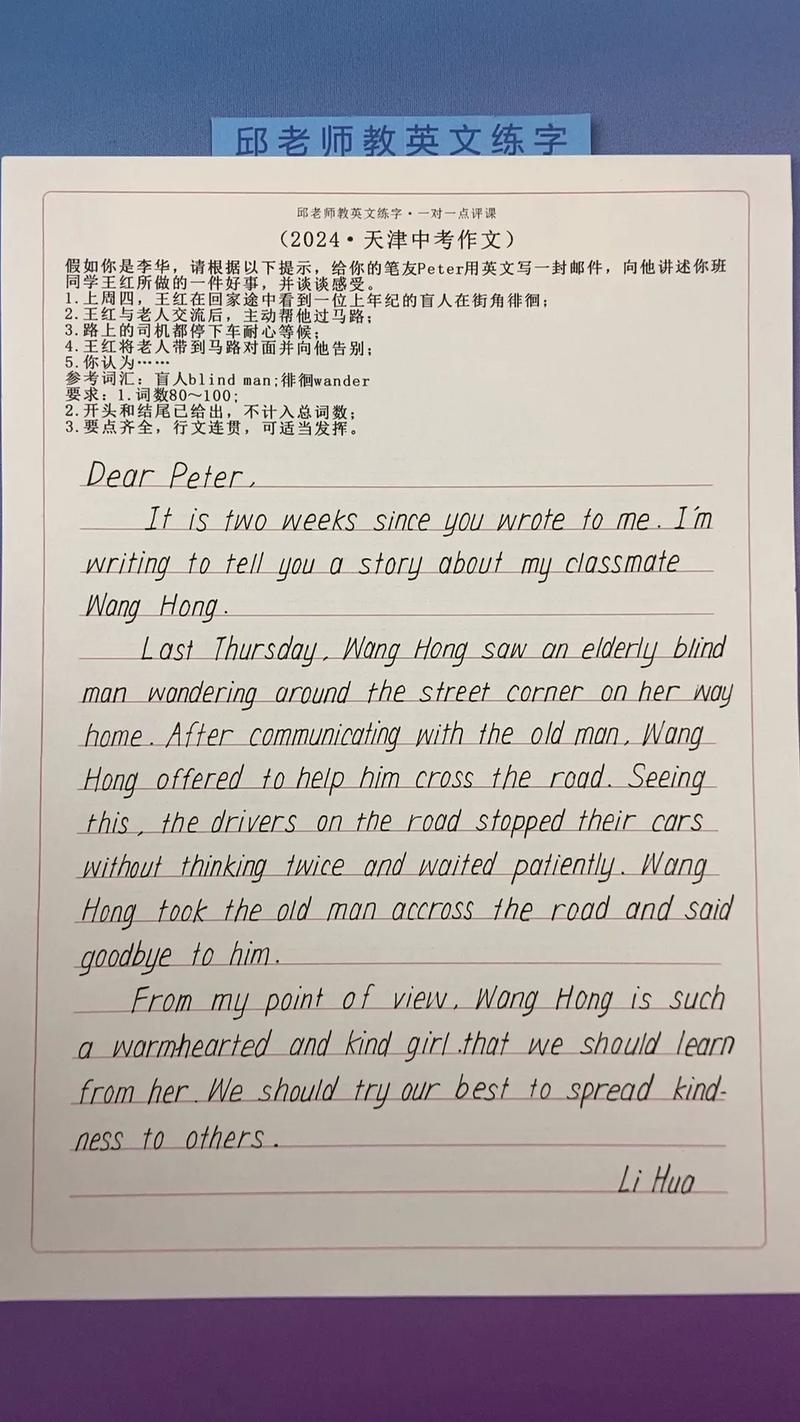 邱老师教英文练字
邱老师教英文练字·一对一点评课
（2024·天津中考作文）
假如你是李华，请根据以下提示，给你的笔友Peter用英文写一封邮件，向他讲述你班
同学王红所做的一件好事，并谈谈感受。
1.上周四，王红在回家途中看到一位上年纪的盲人在街角徘徊；
2.王红与老人交流后，主动帮他过马路；
3.路上的司机都停下车耐心等候；
4.王红将老人带到马路对面并向他告别；
5.你认为……
参考词汇：盲人blind man;徘徊wander
要求：1.词数80～100；
2.开头和结尾已给出，不计入总词数；
3.要点齐全，行文连贯，可适当发挥。
Dear Peter,
It is two weeks since you wrote to me. I'm
writing to tell you a story about my classmate
Wang Hong.
Last Thursday, Wang Hong saw an elderly blind
man wandering around the street corner on her way
home. After communicating with the old man, Wang
Hong offered to help him cross the road. Seeing
this, the drivers on the road stopped their cars
without thinking twice and waited patiently. Wang
Hong took the old man accross the road and said
goodbye to him.
From my point of view, Wang Hong is such
a warmhearted and kind girl .that we should learn
from her. We should try our best to spread kind-
ness to others.
Li Hua